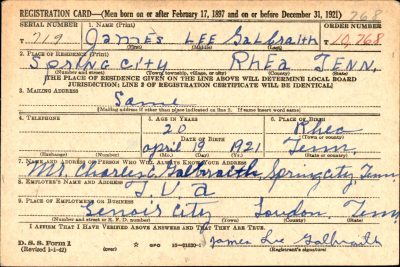 REGISTRATION CARD—(Men born on or after February 17, 1897 and on or before December 31, 1921)
SERIAL NUMBER 1. NAME (Print) ORDER NUMBER
719 JAMES LEE Galbraith 10,768
(First) (Middle) (Last)
2. PLACE OF RESIDENCE (Print)
SPRING CITY RhEa TENN.
(Number and street) (Town, township, village, or city) (County) (State)
[THE PLACE OF RESIDENCE GIVEN ON THE LINE ABOVE WILL DETERMINE LOCAL BOARD
JURISDICTION; LINE 2 OF REGISTRATION CERTIFICATE WILL BE IDENTICAL]
3. MAILING ADDRESS
Same
[Mailing address if other than place indicated on line 2. If same insert word same]
4. TELEPHONE 5. AGE IN YEARS 6. PLACE OF BIRTH
20 Rhea
DATE OF BIRTH (Town or county)
april 19 1921 Tenn.
(Exchange) (Number) (Mo.) (Day) (Yr.) (State or country)
7. NAME AND ADDRESS OF PERSON WHO WILL ALWAYS KNOW YOUR ADDRESS
Mr. Charles Galbraith, Spring City, Tenn
8. EMPLOYER'S NAME AND ADDRESS
T.V.a
9. PLACE OF EMPLOYMENT OR BUSINESS
Lenoir City Loudon, Tenn
(Number and street or R. F. D. number) (Town) (County) (State)
I AFFIRM THAT I HAVE VERIFIED ABOVE ANSWERS AND THAT THEY ARE TRUE.
D. S. S. Form 1
(Revised 1-1-42) GPO James Lee Galbraith
(Registrant's signature)